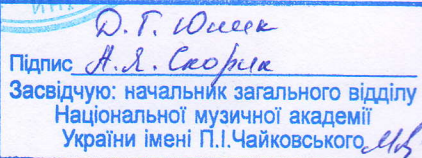 Д. Г. Юник
Підпис А. Я. Скорик
Засвідчую: начальник загального відділу
Національної музичної академії
України імені П.І.Чайковського